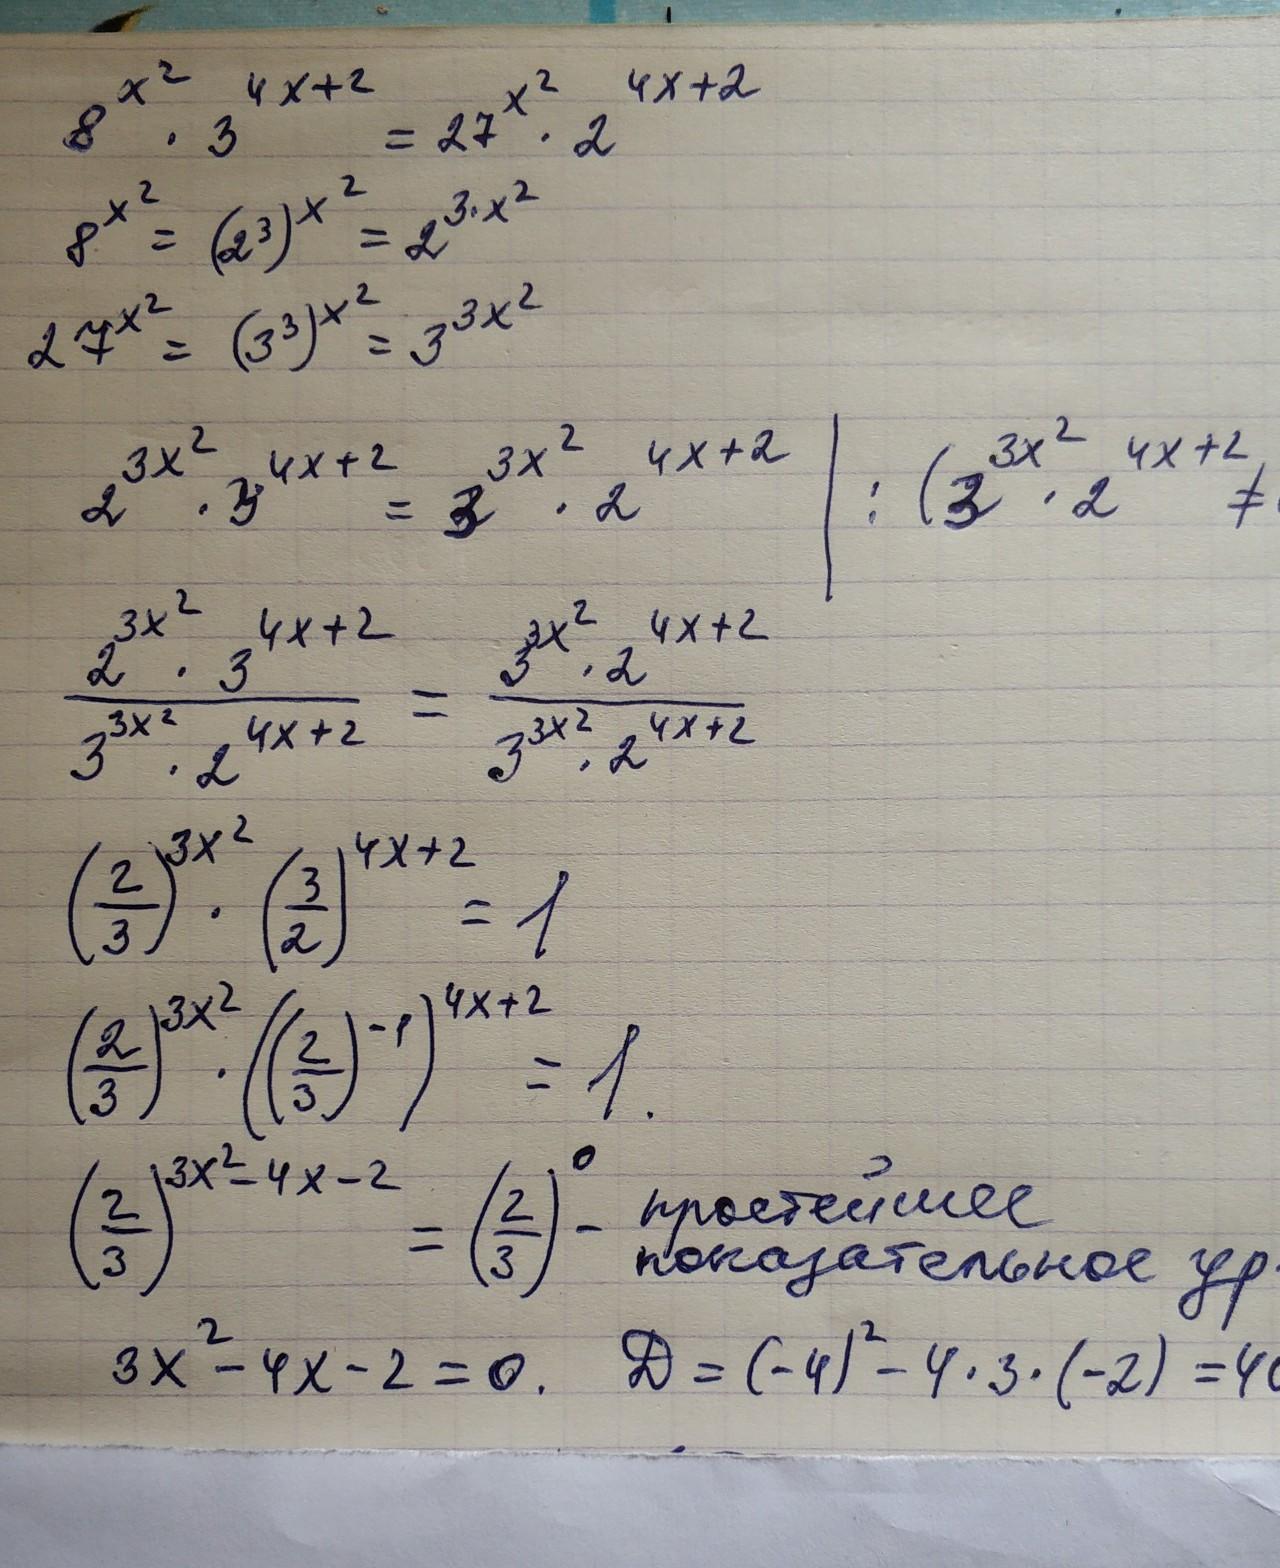 8^{x^2} · 3^{4x+2} = 27^{x^2} · 2^{4x+2}
8^{x^2} = (2^3)^{x^2} = 2^{3·x^2}
27^{x^2} = (3^3)^{x^2} = 3^{3x^2}
2^{3x^2} · 3^{4x+2} = 3^{3x^2} · 2^{4x+2} | : (3^{3x^2} · 2^{4x+2} ≠
\frac{2^{3x^2} · 3^{4x+2}}{3^{3x^2} · 2^{4x+2}} = \frac{3^{3x^2} · 2^{4x+2}}{3^{3x^2} · 2^{4x+2}}
(\frac{2}{3})^{3x^2} · (\frac{3}{2})^{4x+2} = 1
(\frac{2}{3})^{3x^2} · ((\frac{2}{3})^{-1})^{4x+2} = 1.
(\frac{2}{3})^{3x^2-4x-2} = (\frac{2}{3})^0 - простейшее
показательное ур-
3x^2 - 4x - 2 = 0. D = (-4)^2 - 4·3·(-2) = 40